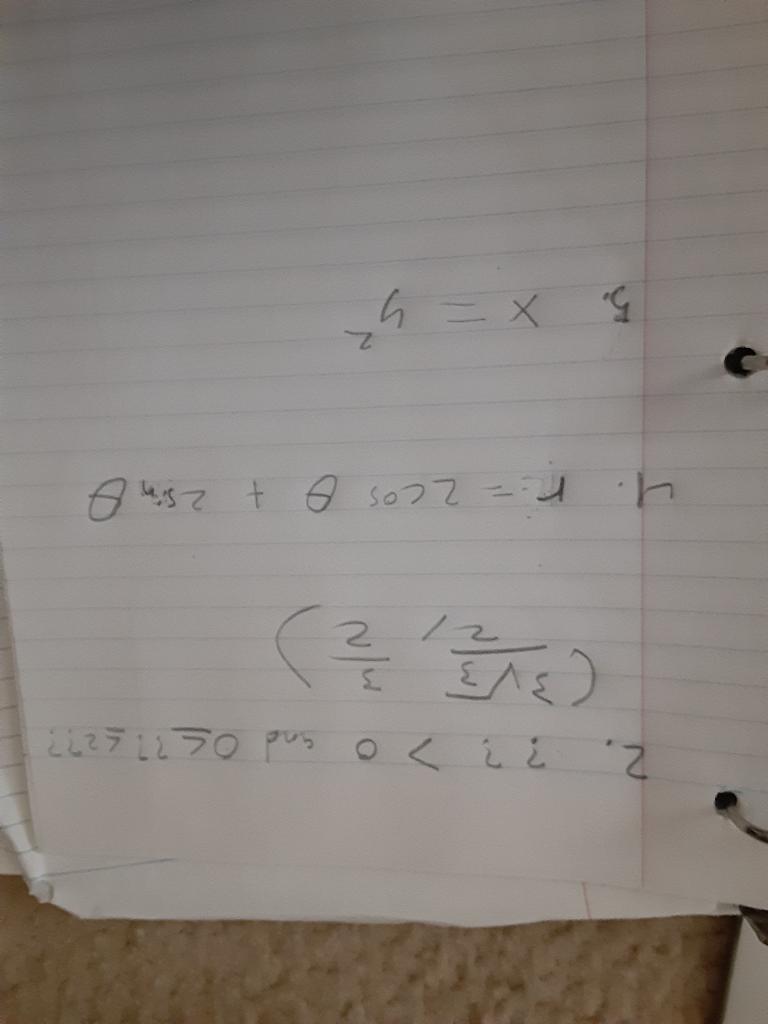 2. ?? > 0 and 0 ≤ ?? < 2??
(3√3/2, 3/2)
4. r = 2cos θ + 2sin θ
5. x = y²